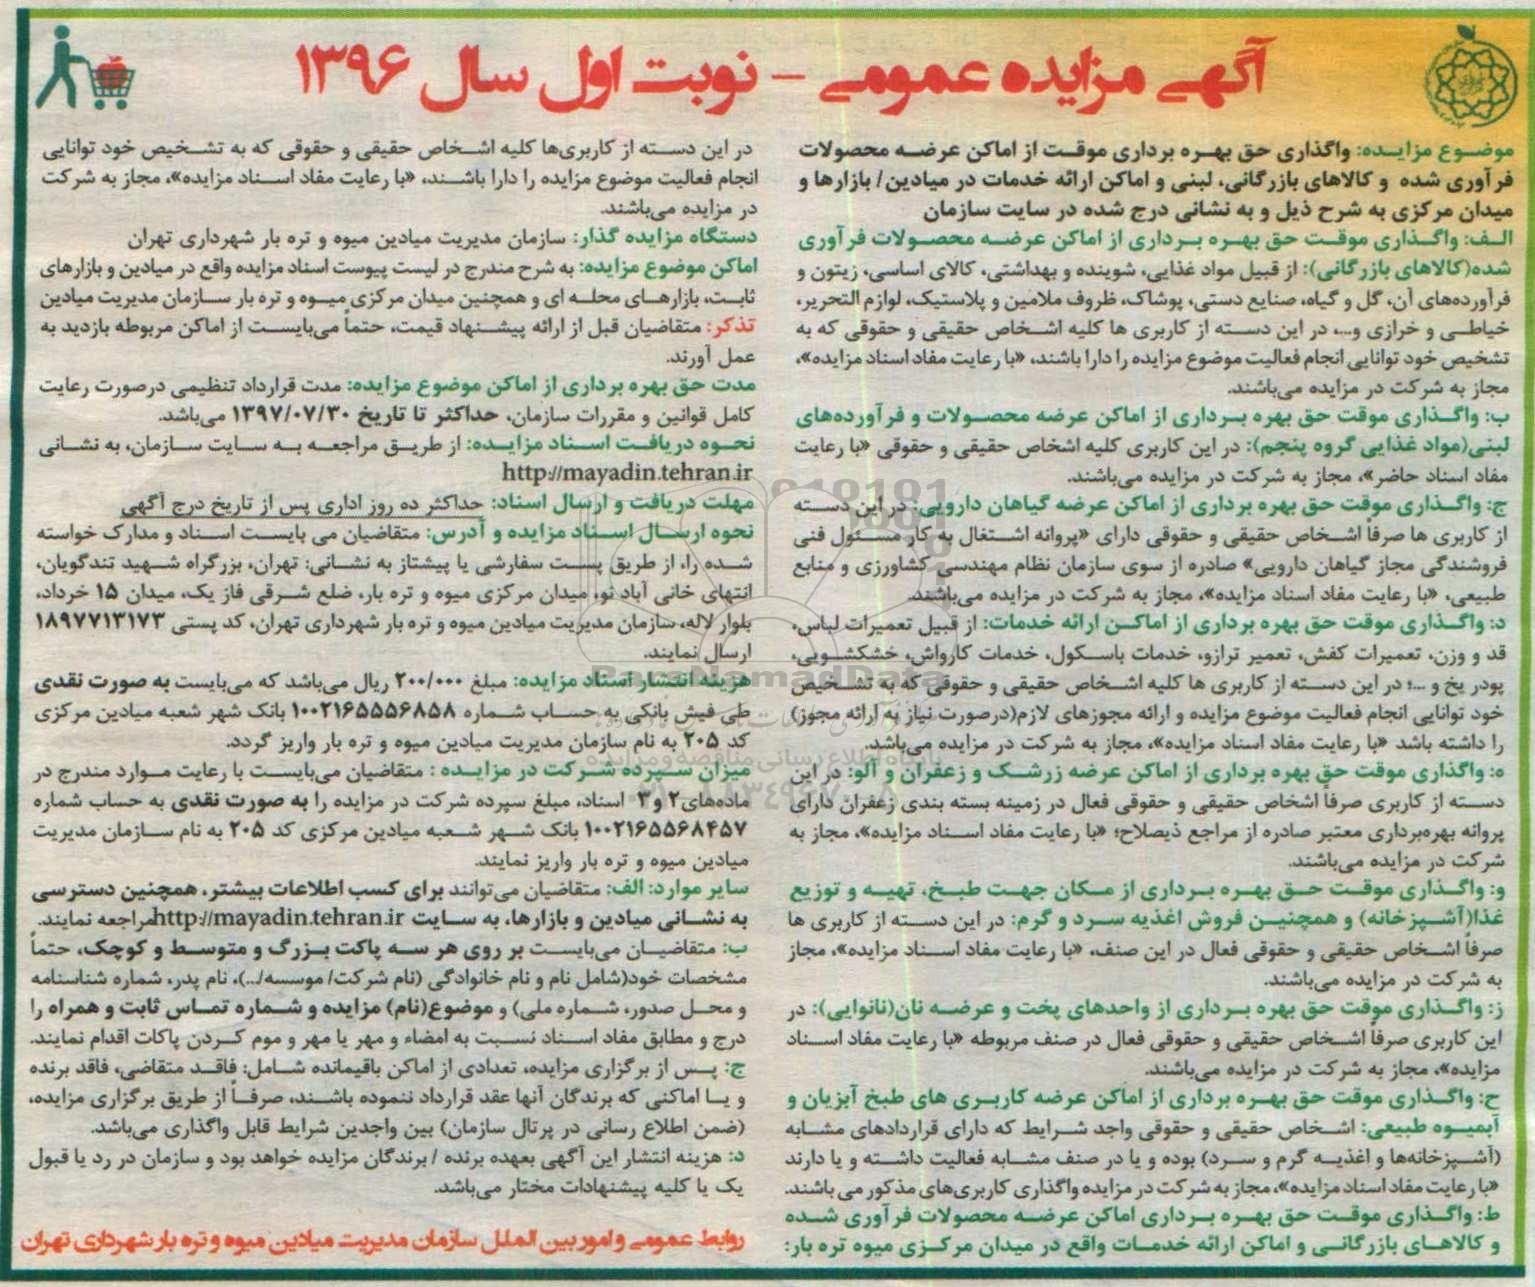 آگهی مزایده عمومی - نوبت اول سال ۱۳۹۶
موضوع مزایده: واگذاری حق بهره برداری موقت از اماکن عرضه محصولات
فرآوری شده و کالاهای بازرگانی، لبنی و اماکن ارائه خدمات در میادین/ بازارها و
میدان مرکزی به شرح ذیل و به نشانی درج شده در سایت سازمان
الف: واگذاری موقت حق بهره برداری از اماکن عرضه محصولات فرآوری
شده(کالاهای بازرگانی): از قبیل مواد غذایی، شوینده و بهداشتی، کالای اساسی، زیتون و
فرآورده‌های آن، گل و گیاه، صنایع دستی، پوشاک، ظروف ملامین و پلاستیک، لوازم التحریر،
خیاطی و خرازی و...، در این دسته از کاربری ها کلیه اشخاص حقیقی و حقوقی که به
تشخیص خود توانایی انجام فعالیت موضوع مزایده را دارا باشند، «با رعایت مفاد اسناد مزایده»،
مجاز به شرکت در مزایده می‌باشند.
ب: واگذاری موقت حق بهره برداری از اماکن عرضه محصولات و فرآورده‌های
لبنی(مواد غذایی گروه پنجم): در این کاربری کلیه اشخاص حقیقی و حقوقی «با رعایت
مفاد اسناد حاضر»، مجاز به شرکت در مزایده می‌باشند.
ج: واگذاری موقت حق بهره برداری از اماکن عرضه گیاهان دارویی: در این دسته
از کاربری ها صرفاً اشخاص حقیقی و حقوقی دارای «پروانه اشتغال به کار مسئول فنی
فروشندگی مجاز گیاهان دارویی» صادره از سوی سازمان نظام مهندسی کشاورزی و منابع
طبیعی، «با رعایت مفاد اسناد مزایده»، مجاز به شرکت در مزایده می‌باشند.
د: واگذاری موقت حق بهره برداری از اماکن ارائه خدمات: از قبیل تعمیرات لباس،
قد و وزن، تعمیرات کفش، تعمیر ترازو، خدمات باسکول، خدمات کارواش، خشکشویی،
پودر یخ و ...؛ در این دسته از کاربری ها کلیه اشخاص حقیقی و حقوقی که به تشخیص
خود توانایی انجام فعالیت موضوع مزایده و ارائه مجوزهای لازم(درصورت نیاز به ارائه مجوز)
را داشته باشد «با رعایت مفاد اسناد مزایده»، مجاز به شرکت در مزایده می‌باشد.
ه: واگذاری موقت حق بهره برداری از اماکن عرضه زرشک و زعفران و آلو: در این
دسته از کاربری صرفاً اشخاص حقیقی و حقوقی فعال در زمینه بسته بندی زعفران دارای
پروانه بهره‌برداری معتبر صادره از مراجع ذیصلاح؛ «با رعایت مفاد اسناد مزایده»، مجاز به
شرکت در مزایده می‌باشند.
و: واگذاری موقت حق بهره برداری از مکان جهت طبخ، تهیه و توزیع
غذا(آشپزخانه) و همچنین فروش اغذیه سرد و گرم: در این دسته از کاربری ها
صرفاً اشخاص حقیقی و حقوقی فعال در این صنف، «با رعایت مفاد اسناد مزایده»، مجاز
به شرکت در مزایده می‌باشند.
ز: واگذاری موقت حق بهره برداری از واحدهای پخت و عرضه نان(نانوایی): در
این کاربری صرفاً اشخاص حقیقی و حقوقی فعال در صنف مربوطه «با رعایت مفاد اسناد
مزایده»، مجاز به شرکت در مزایده می‌باشند.
ح: واگذاری موقت حق بهره برداری از اماکن عرضه کاربری های طبخ آبزیان و
آبمیوه طبیعی: اشخاص حقیقی و حقوقی واجد شرایط که دارای قراردادهای مشابه
(آشپزخانه‌ها و اغذیه گرم و سرد) بوده و یا در صنف مشابه فعالیت داشته و یا دارند
«با رعایت مفاد اسناد مزایده»، مجاز به شرکت در مزایده واگذاری کاربری‌های مذکور می باشند.
ط: واگذاری موقت حق بهره برداری اماکن عرضه محصولات فرآوری شده
و کالاهای بازرگانی و اماکن ارائه خدمات واقع در میدان مرکزی میوه تره بار:
در این دسته از کاربری‌ها کلیه اشخاص حقیقی و حقوقی که به تشخیص خود توانایی
انجام فعالیت موضوع مزایده را دارا باشند، «با رعایت مفاد اسناد مزایده»، مجاز به شرکت
در مزایده می‌باشند.
دستگاه مزایده گذار: سازمان مدیریت میادین میوه و تره بار شهرداری تهران
اماکن موضوع مزایده: به شرح مندرج در لیست پیوست اسناد مزایده واقع در میادین و بازارهای
ثابت، بازارهای محله ای و همچنین میدان مرکزی میوه و تره بار سازمان مدیریت میادین
تذکر: متقاضیان قبل از ارائه پیشنهاد قیمت، حتماً می‌بایست از اماکن مربوطه بازدید به
عمل آورند.
مدت حق بهره برداری از اماکن موضوع مزایده: مدت قرارداد تنظیمی درصورت رعایت
کامل قوانین و مقررات سازمان، حداکثر تا تاریخ ۱۳۹۷/۰۷/۳۰ می‌باشد.
نحوه دریافت اسناد مزایده: از طریق مراجعه به سایت سازمان، به نشانی
http://mayadin.tehran.ir
مهلت دریافت و ارسال اسناد: حداکثر ده روز اداری پس از تاریخ درج آگهی
نحوه ارسال اسناد مزایده و آدرس: متقاضیان می بایست اسناد و مدارک خواسته
شده را، از طریق پست سفارشی یا پیشتاز به نشانی: تهران، بزرگراه شهید تندگویان،
انتهای خانی آباد نو، میدان مرکزی میوه و تره بار، ضلع شرقی فاز یک، میدان ۱۵ خرداد،
بلوار لاله، سازمان مدیریت میادین میوه و تره بار شهرداری تهران، کد پستی ۱۸۹۷۷۱۳۱۷۳
ارسال نمایند.
هزینه انتشار اسناد مزایده: مبلغ ۲۰۰/۰۰۰ ریال می‌باشد که می‌بایست به صورت نقدی
طی فیش بانکی به حساب شماره ۱۰۰۲۱۶۵۵۵۶۸۵۸ بانک شهر شعبه میادین مرکزی
کد ۲۰۵ به نام سازمان مدیریت میادین میوه و تره بار واریز گردد.
میزان سپرده شرکت در مزایده : متقاضیان می‌بایست با رعایت موارد مندرج در
ماده‌های ۲ و ۳ اسناد، مبلغ سپرده شرکت در مزایده را به صورت نقدی به حساب شماره
۱۰۰۲۱۶۵۵۶۸۴۵۷ بانک شهر شعبه میادین مرکزی کد ۲۰۵ به نام سازمان مدیریت
میادین میوه و تره بار واریز نمایند.
سایر موارد: الف: متقاضیان می‌توانند برای کسب اطلاعات بیشتر، همچنین دسترسی
به نشانی میادین و بازارها، به سایت http://mayadin.tehran.ir مراجعه نمایند.
ب: متقاضیان می‌بایست بر روی هر سه پاکت بزرگ و متوسط و کوچک، حتماً
مشخصات خود(شامل نام و نام خانوادگی (نام شرکت/ موسسه/...)، نام پدر، شماره شناسنامه
و محل صدور، شماره ملی) و موضوع(نام) مزایده و شماره تماس ثابت و همراه را
درج و مطابق مفاد اسناد نسبت به امضاء و مهر یا مهر و موم کردن پاکات اقدام نمایند.
ج: پس از برگزاری مزایده، تعدادی از اماکن باقیمانده شامل: فاقد متقاضی، فاقد برنده
و یا اماکنی که برندگان آنها عقد قرارداد ننموده باشند، صرفاً از طریق برگزاری مزایده،
(ضمن اطلاع رسانی در پرتال سازمان) بین واجدین شرایط قابل واگذاری می‌باشد.
د: هزینه انتشار این آگهی بعهده برنده / برندگان مزایده خواهد بود و سازمان در رد یا قبول
یک یا کلیه پیشنهادات مختار می‌باشد.
روابط عمومی و امور بین الملل سازمان مدیریت میادین میوه و تره بار شهرداری تهران
ParsNamadData
پایگاه اطلاع رسانی مناقصه و مزایده